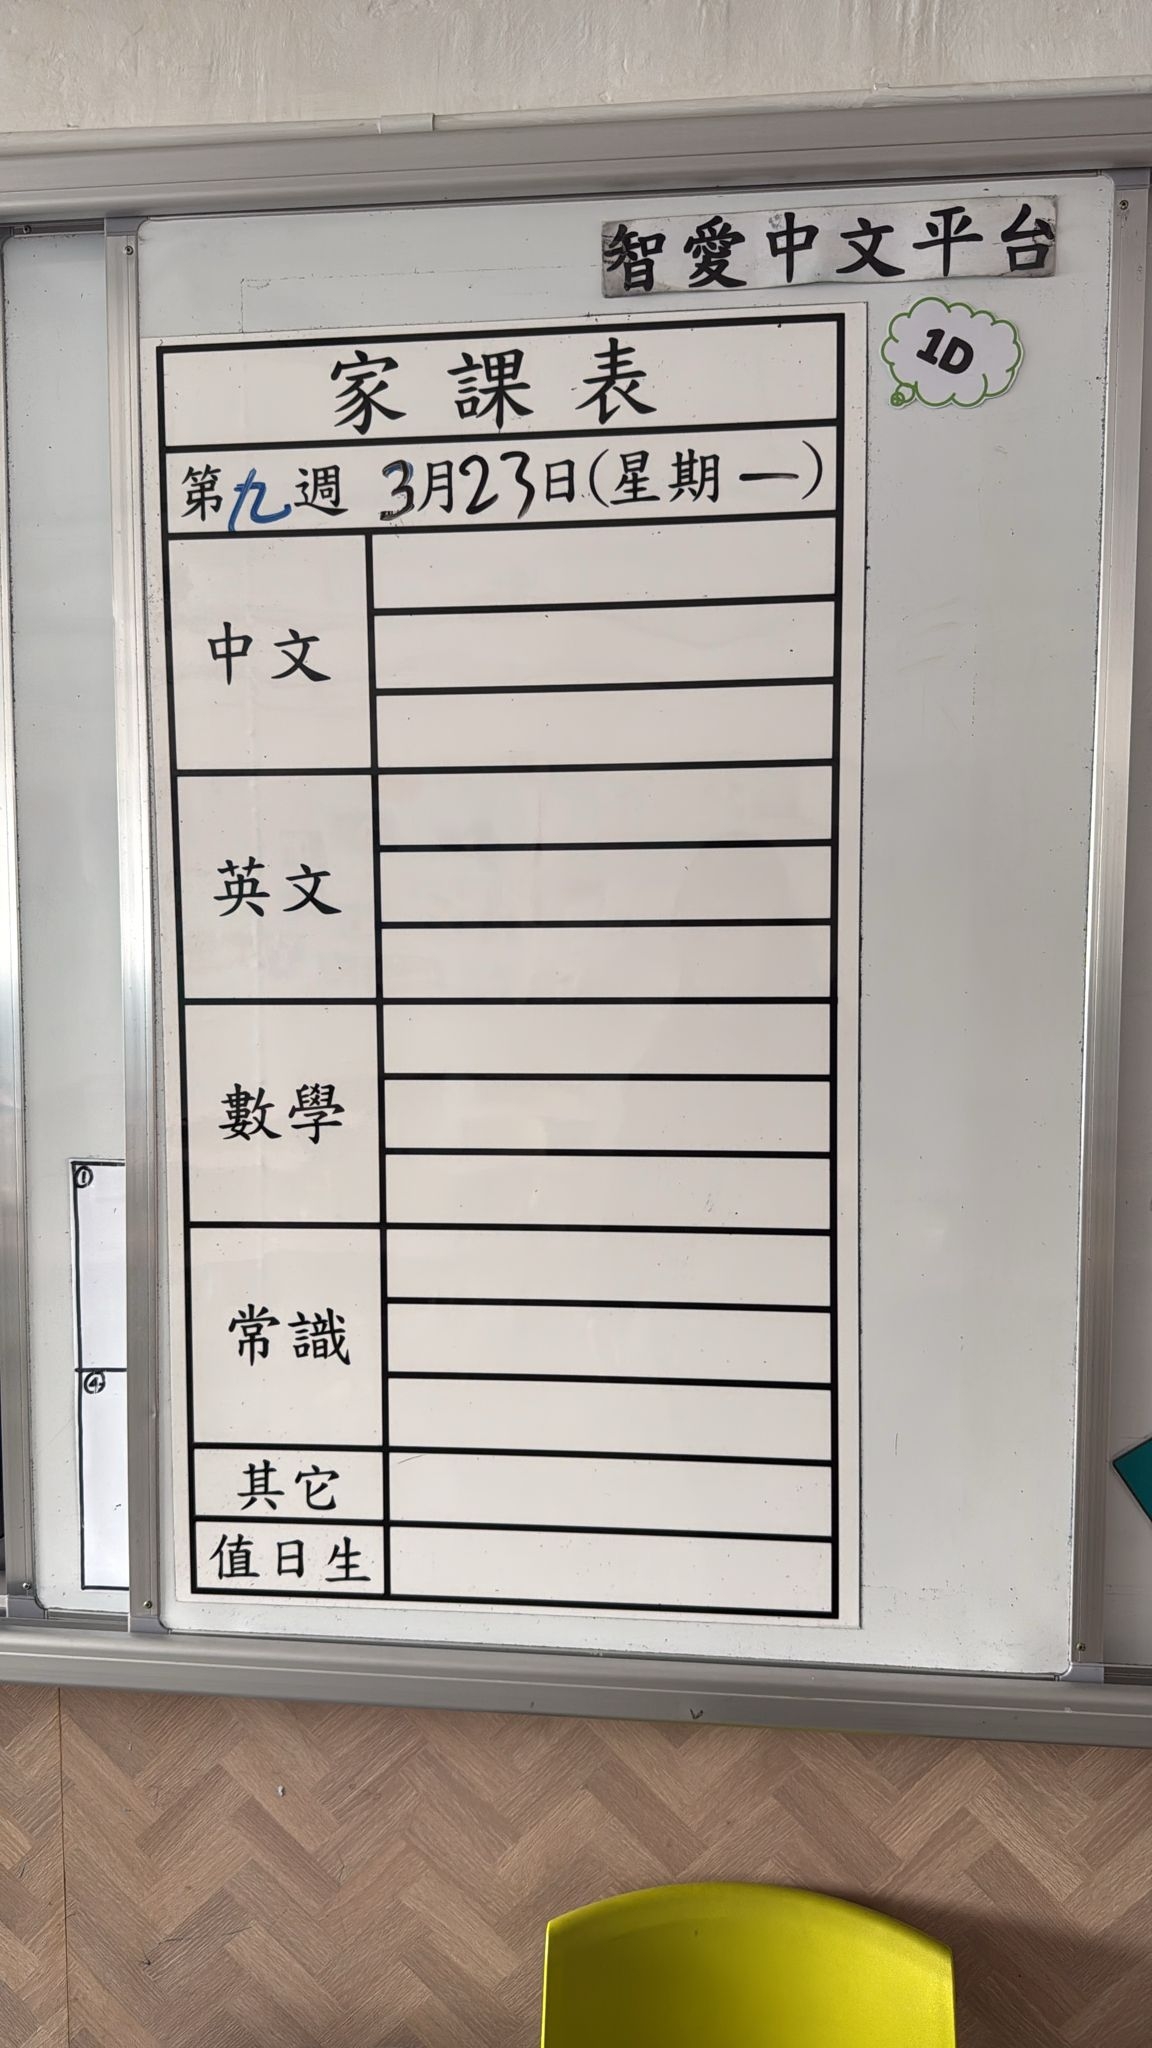 智愛中文平台
1D
家課表
第九週 3月23日(星期一)
中文
英文
數學
常識
其它
值日生
①
④